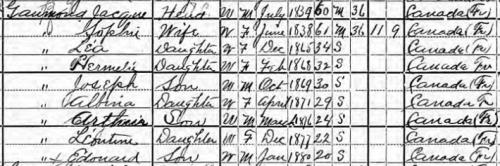 Jacque Head W M July 1839 60 M 36 Canada (Fr)
" Sophie Wife W F June 1838 61 M 36 11 9 Canada (Fr)
" Léa Daughter W F Dec 1865 34 S Canada (Fr)
" Hermelie Daughter W F Feb 1868 32 S Canada Fr
" Joseph Son W M Oct 1869 30 S Canada (Fr)
" Albina Daughter W F April 1871 29 S Canada Fr
" Arthur Son W M March 1876 24 S Canada (Fr)
" Léontine Daughter W F Dec 1877 22 S Canada (Fr)
" Edouard Son W M Jan 1880 20 S Canada (Fr)